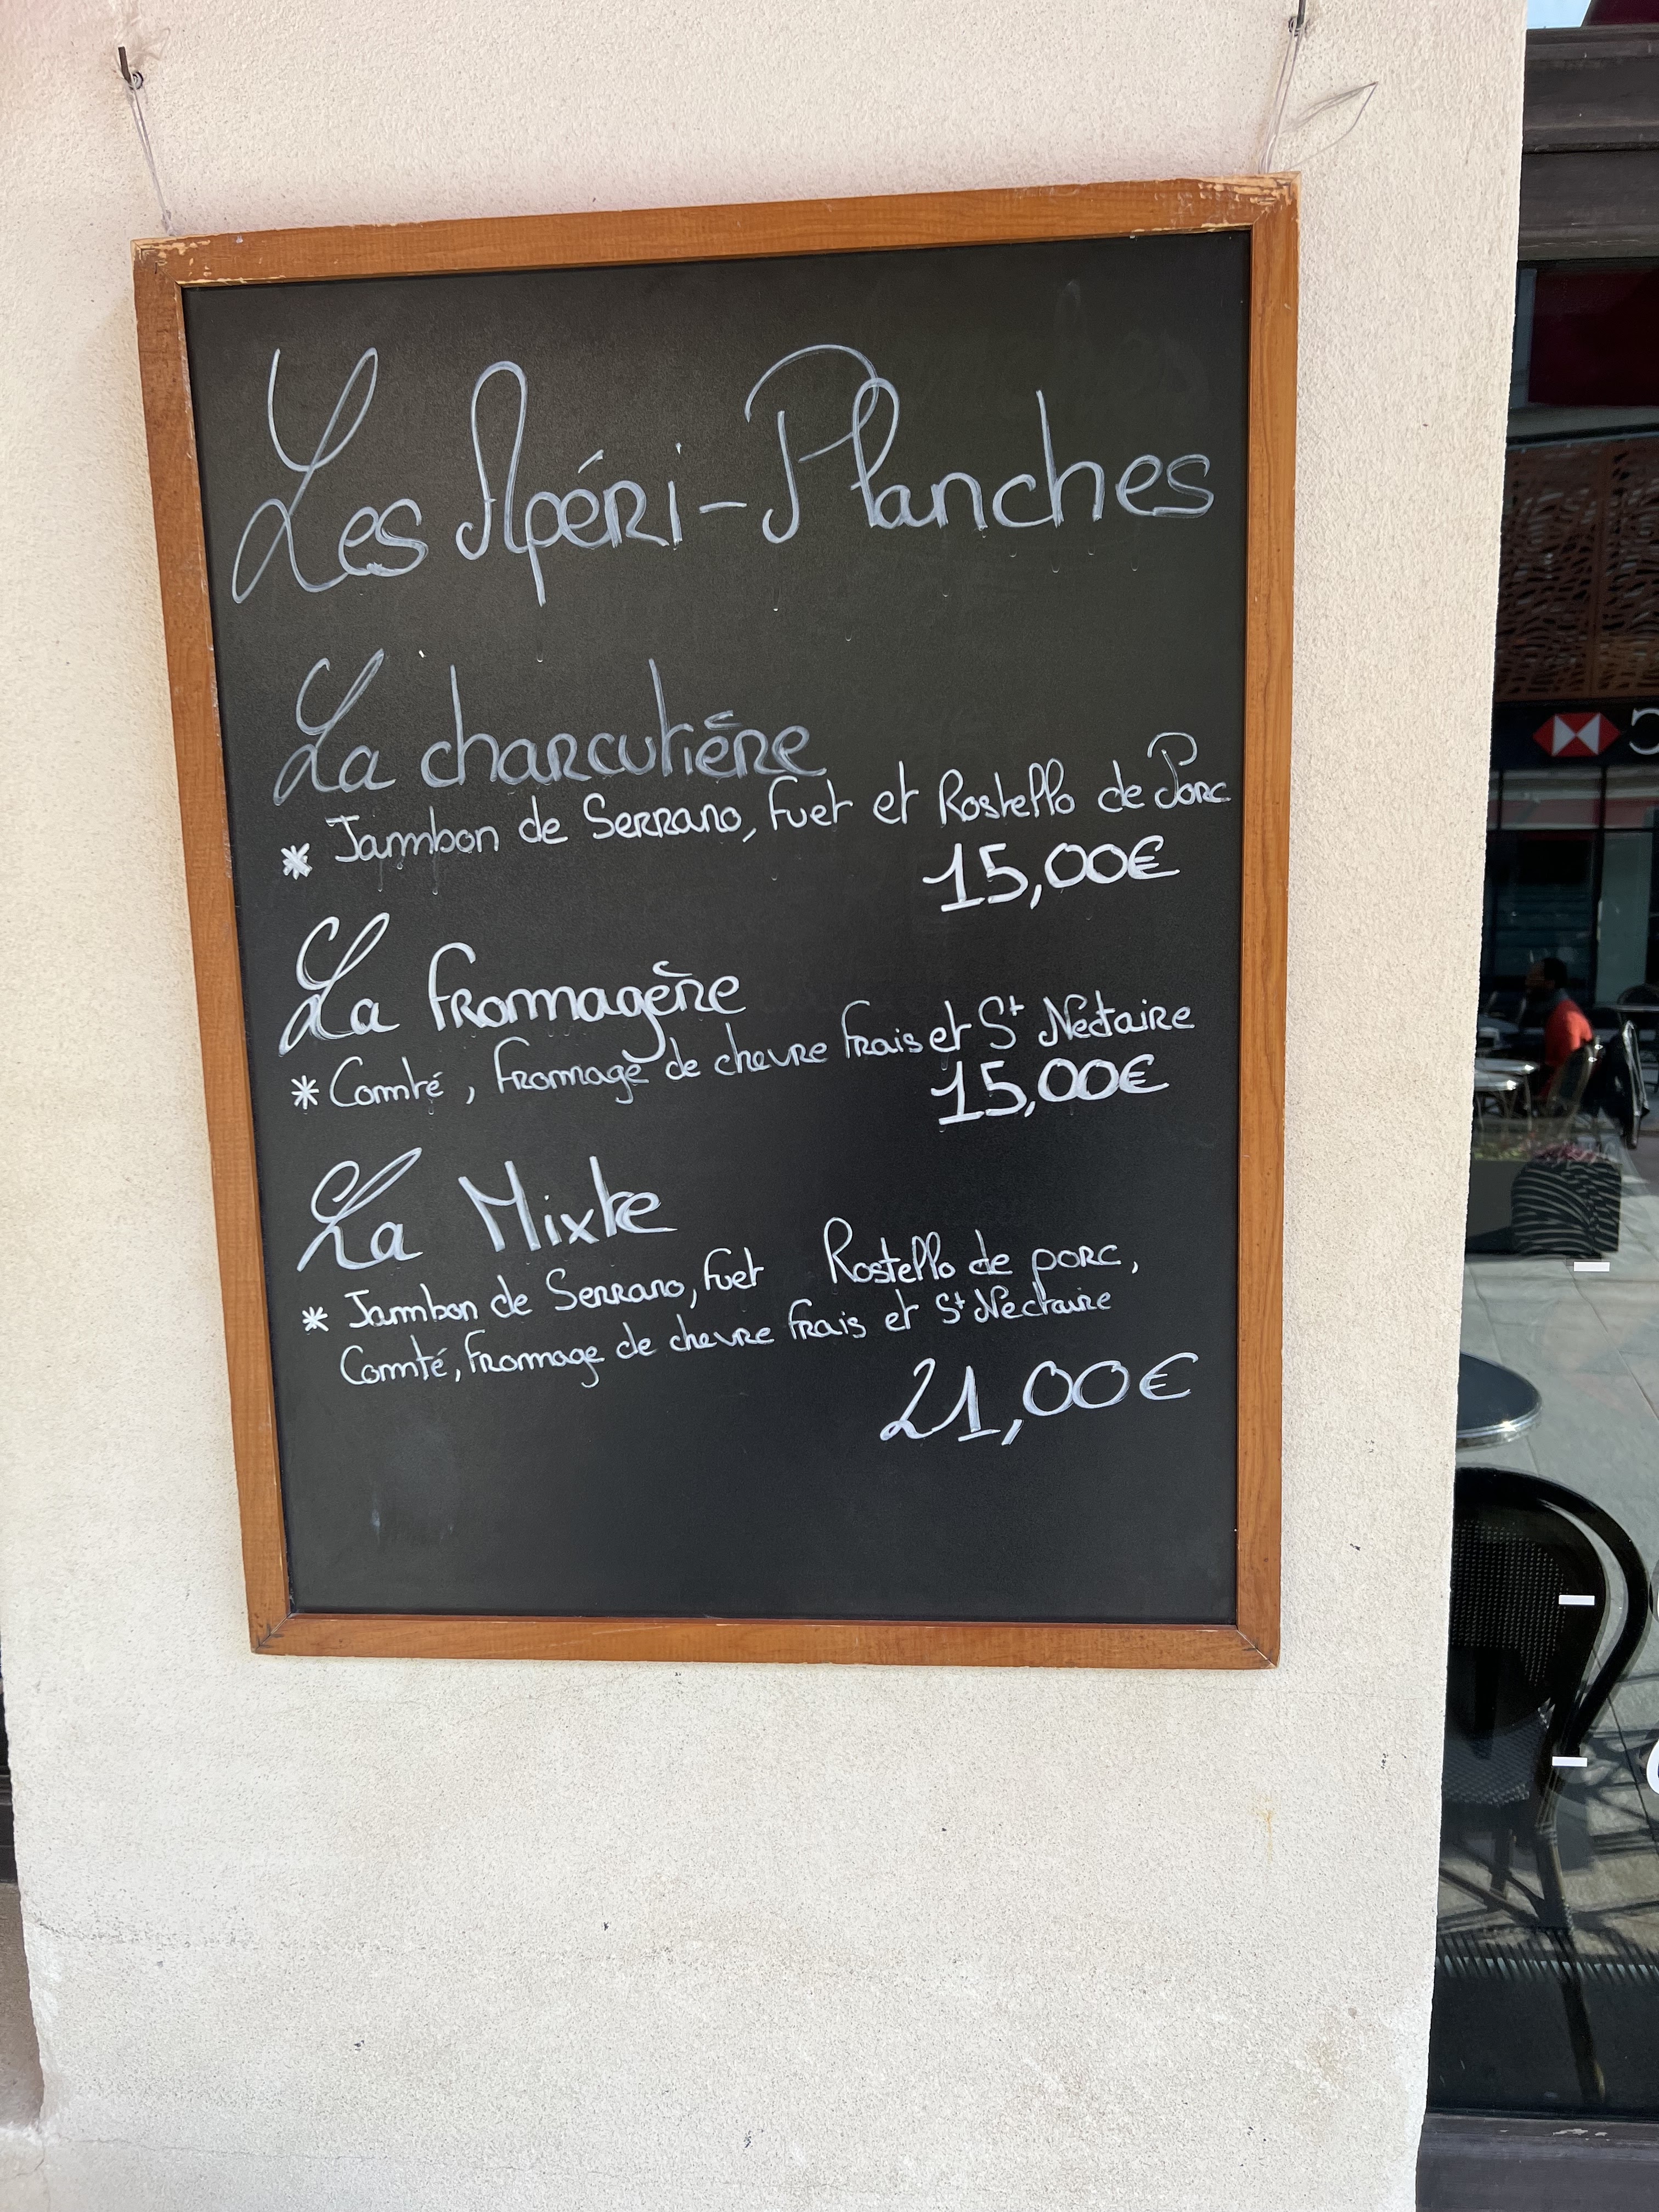 Les Apéri-Planches
La charcutière
* Jambon de Serrano, Fuet et Rostello de Porc
15,00€
La fromagère
* Comté, Fromage de chevre frais et St Nectaire
15,00€
La Mixte
* Jambon de Serrano, Fuet Rostello de porc,
Comté, Fromage de chevre frais et St Nectaire
21,00€